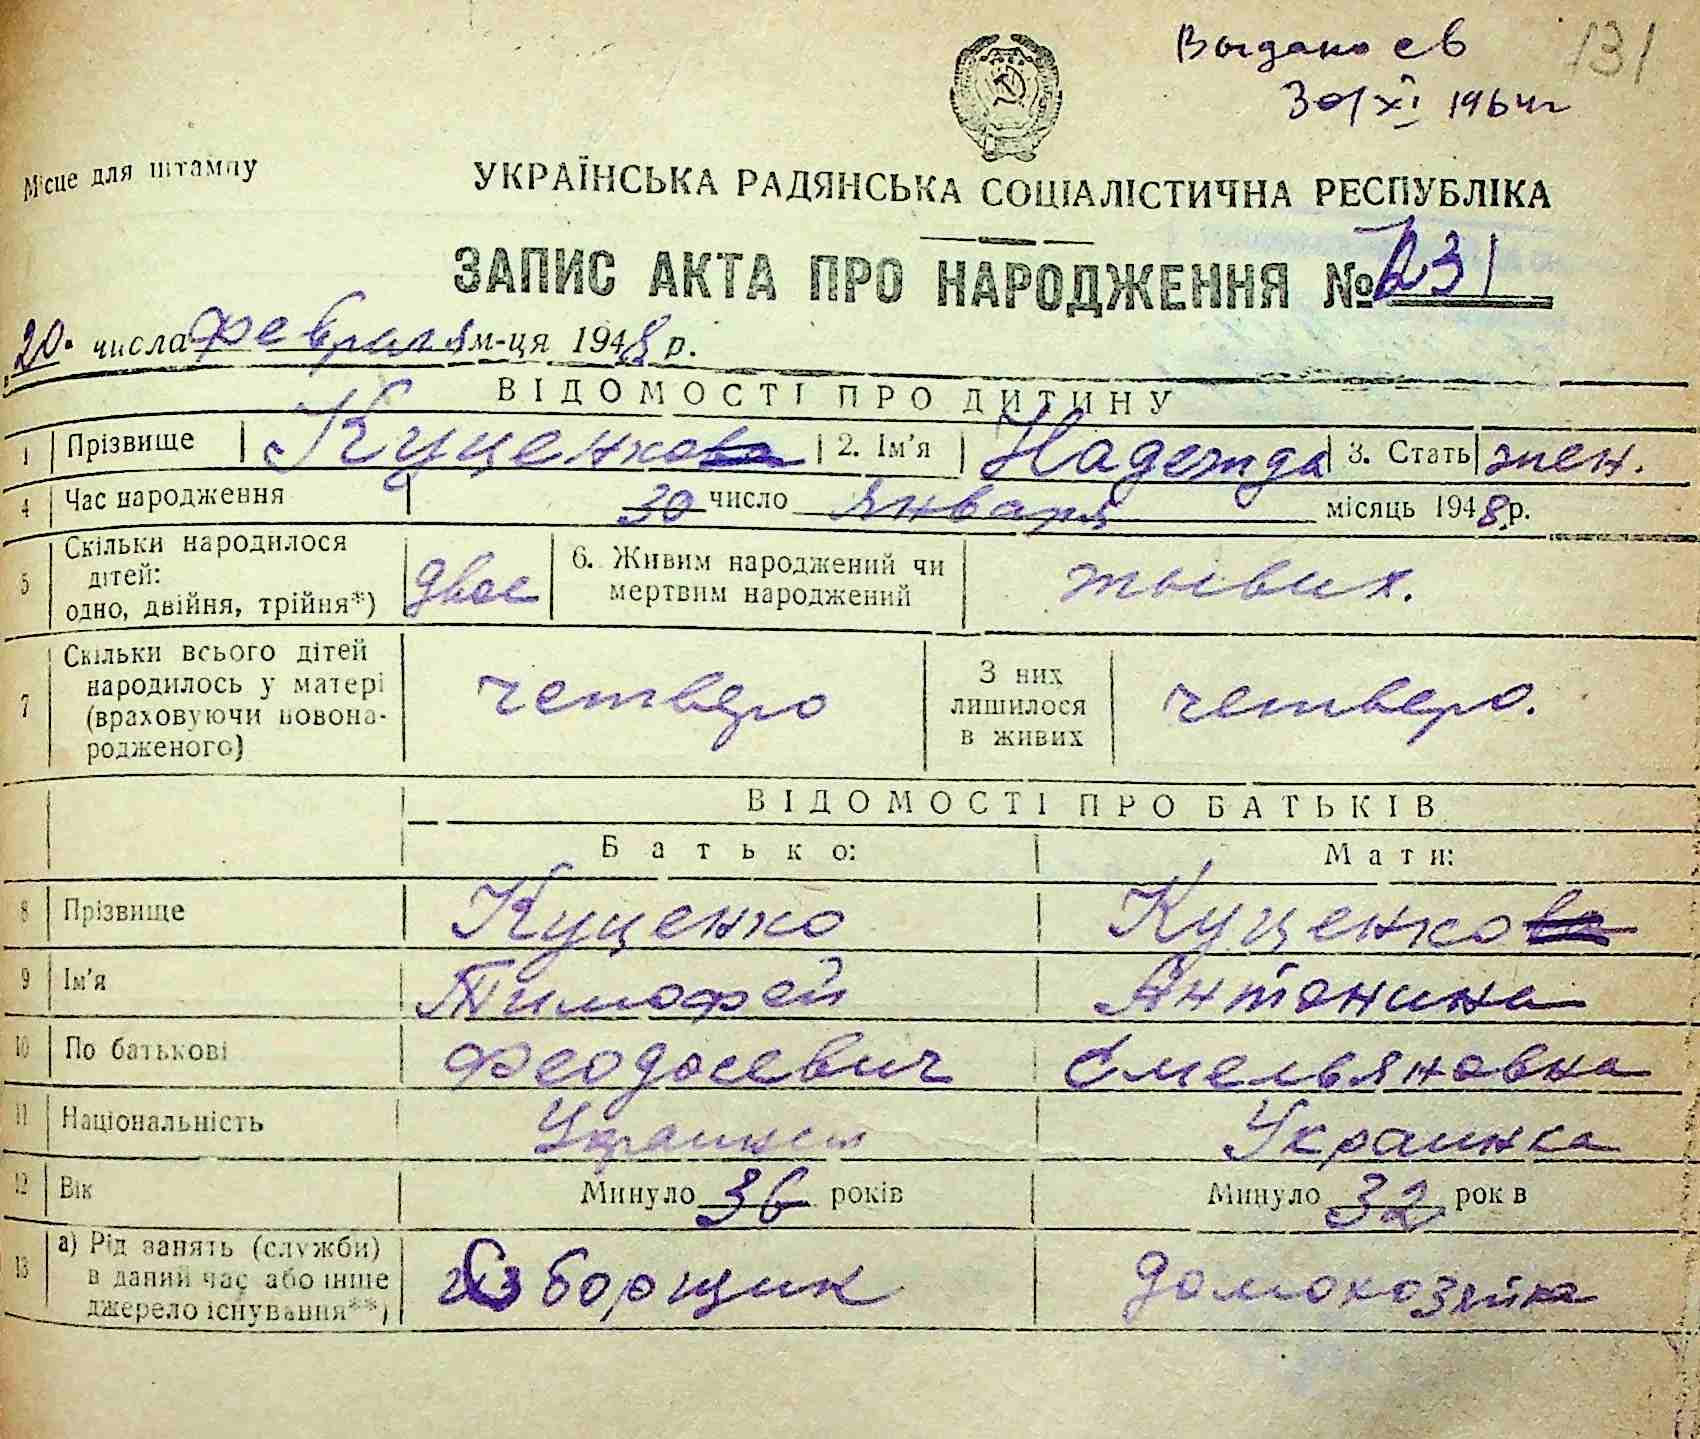 Выдано св
131
30/XI 1964 г
Місце для штампу
УКРАЇНСЬКА РАДЯНСЬКА СОЦІАЛІСТИЧНА РЕСПУБЛІКА
ЗАПИС АКТА ПРО НАРОДЖЕННЯ № 231
20. числа февраля м-ця 1948 р.
ВІДОМОСТІ ПРО ДИТИНУ
1 Прізвище Куценкова 2. Ім'я Надежда 3. Стать жен.
4 Час народження 30 число января місяць 1948 р.
5 Скільки народилося дітей: одно, двійня, трійня*) двое 6. Живим народжений чи мертвим народжений живых.
7 Скільки всього дітей народилось у матері (враховуючи новонародженого) четверо З них лишилося в живих четверо.
ВІДОМОСТІ ПРО БАТЬКІВ
Батько: Мати:
8 Прізвище Куценко Куценкова
9 Ім'я Тимофей Антонина
10 По батькові Феодосевич Емельяновна
11 Національність Украинец Украинка
12 Вік Минуло 36 років Минуло 32 рок в
13 а) Рід занять (служби) в даний час або інше джерело існування**) борщик домохозяйка